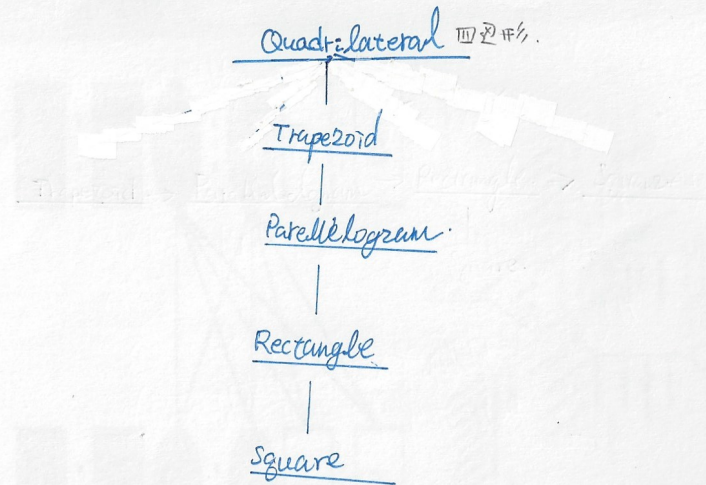 Quadrilateral 四边形.
Trapezoid
Parellelogram.
Rectangle
Square